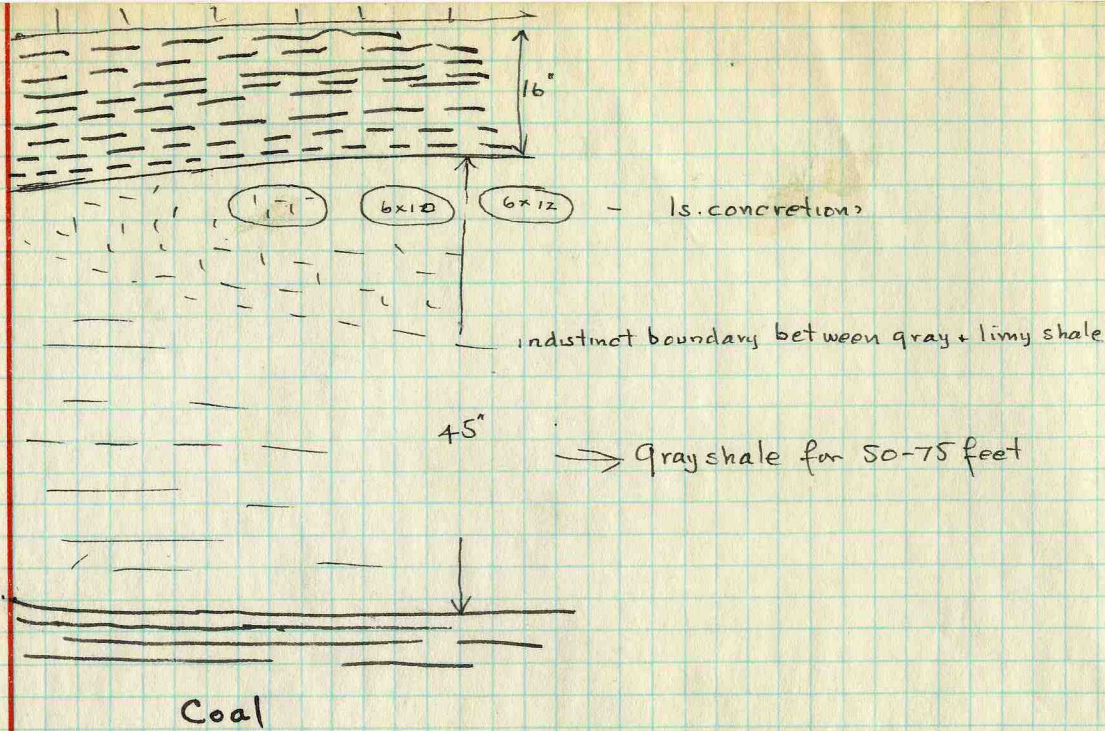 16"
6x12 6x12 - ls. concretions
indistinct boundary between gray + limy shale
45"
→ gray shale for 50-75 feet
Coal